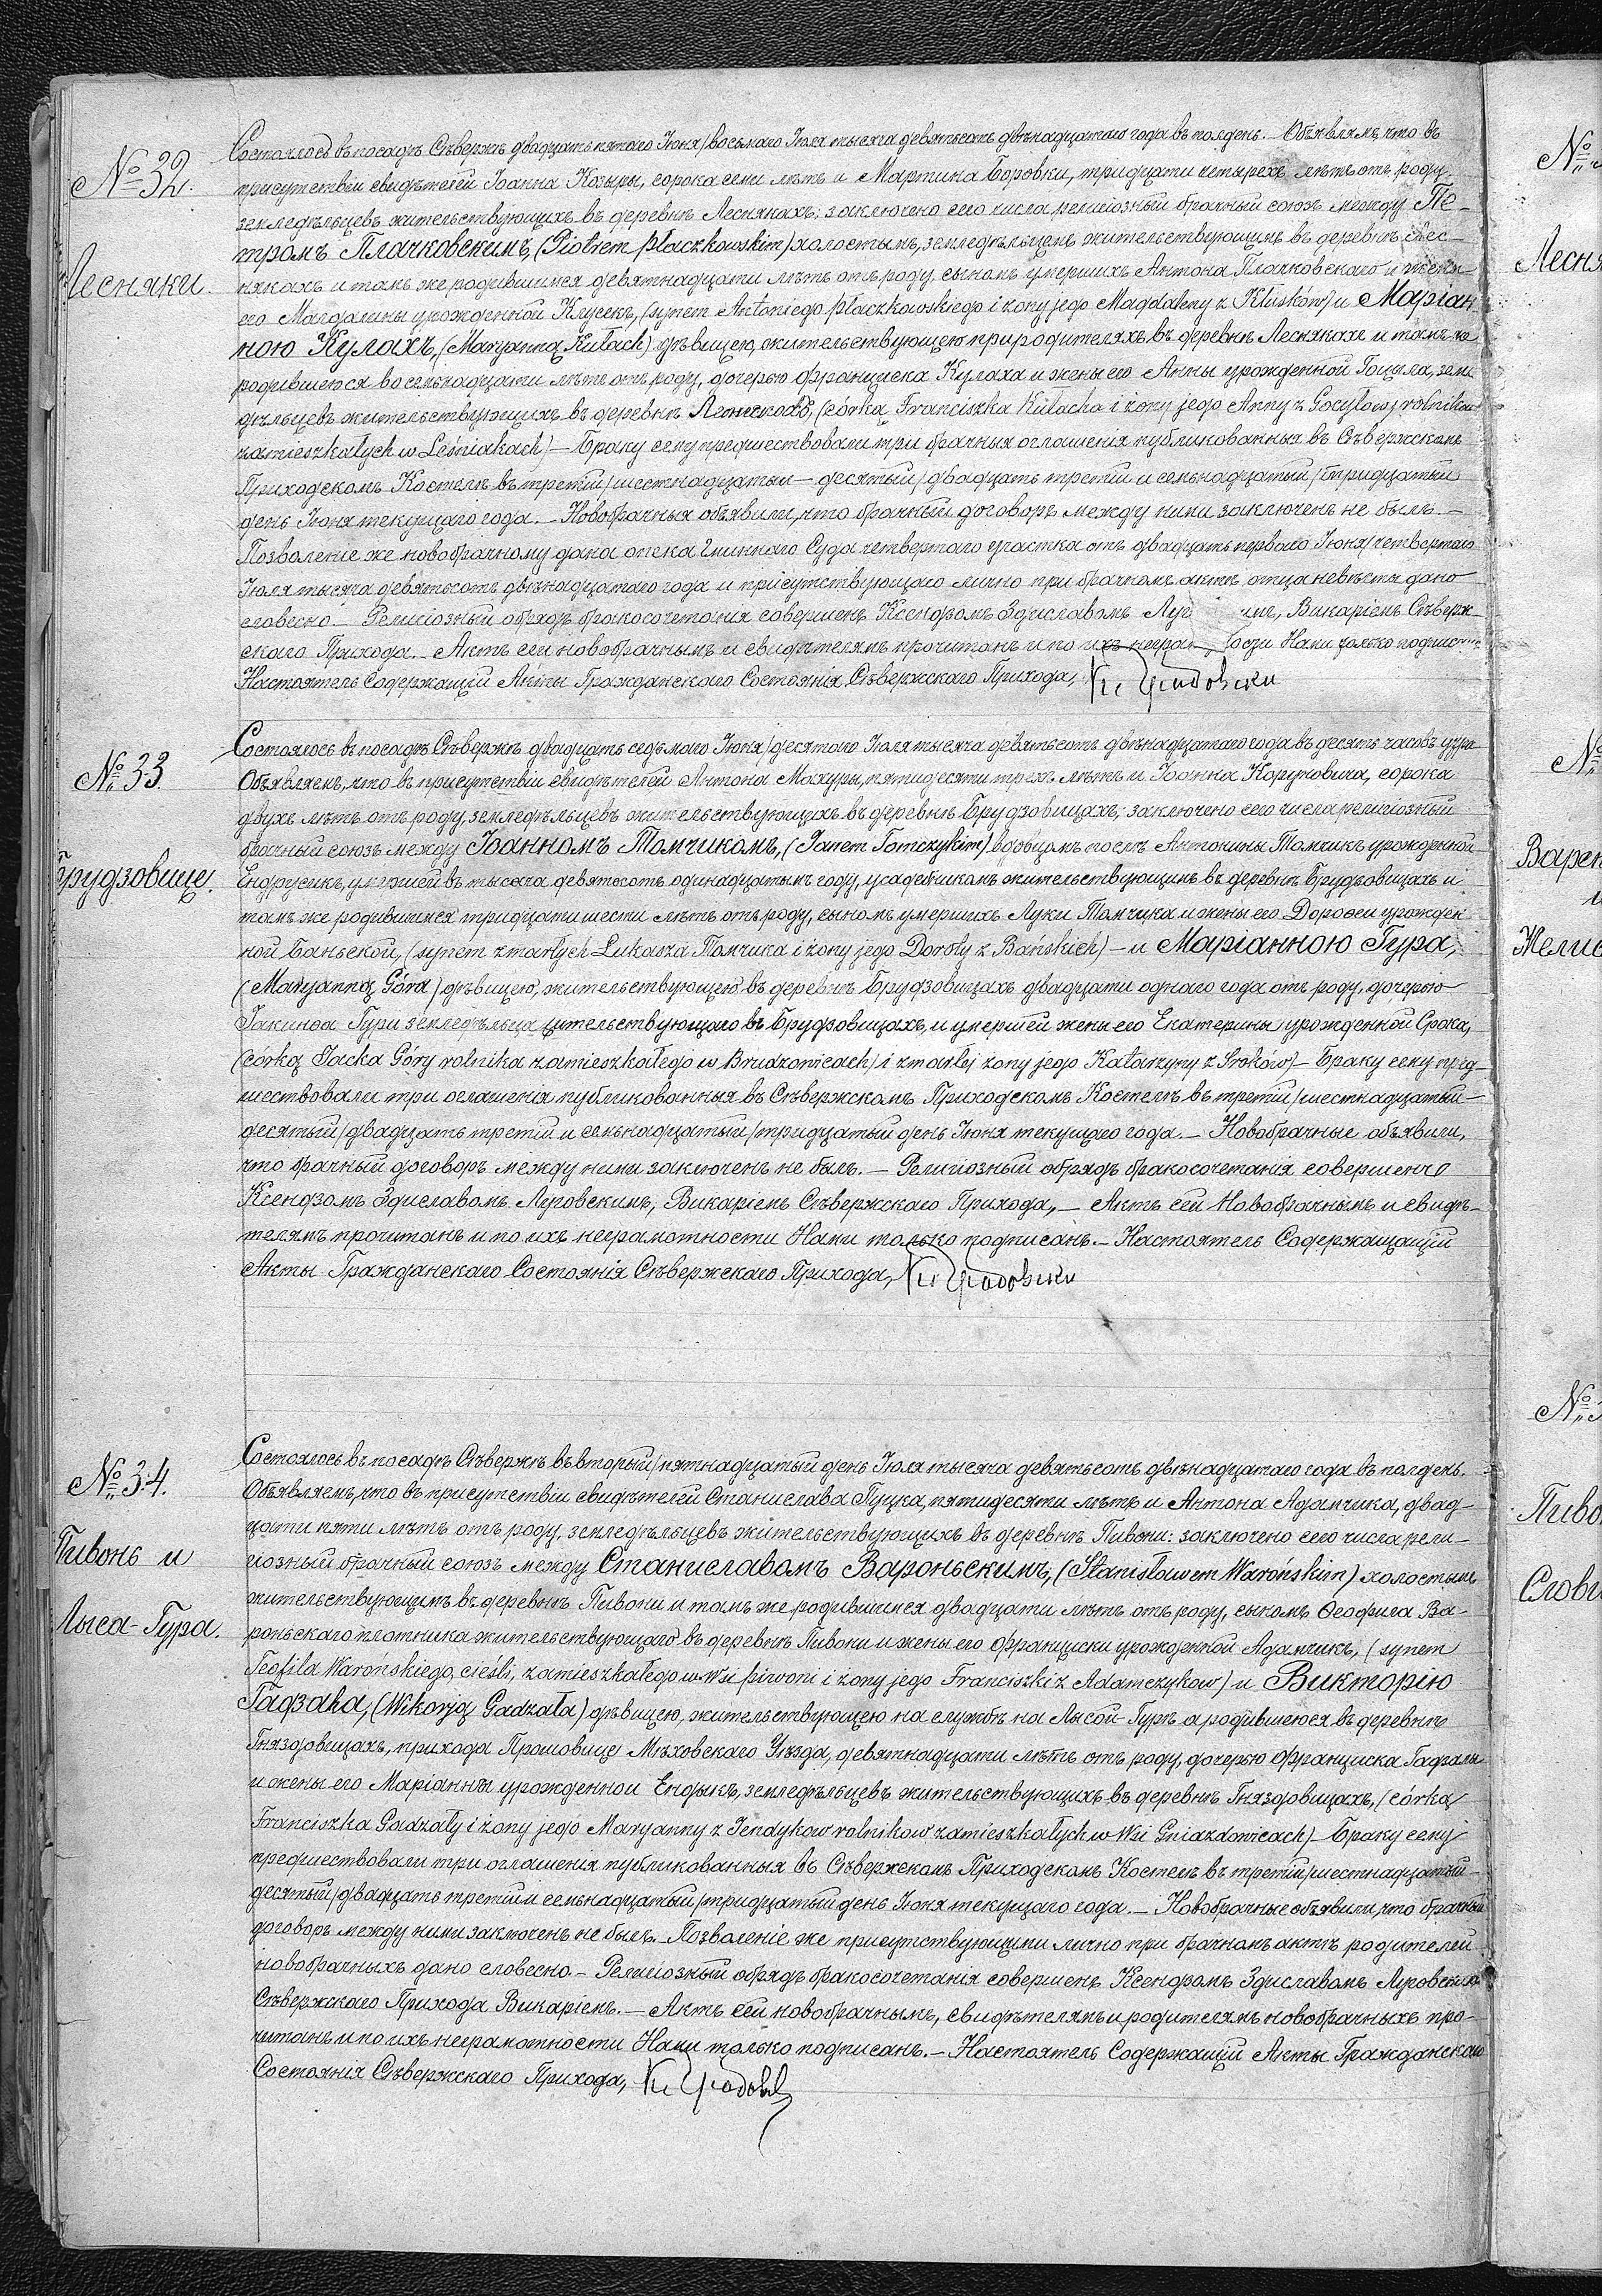 № 32.
Лесняки.
Состоялось въ посадѣ Сѣвержѣ двадцать пятаго Іюня/восьмаго Іюля тысяча девятьсотъ двѣнадцатаго года въ полдень. – Объявляемъ, что въ
присутствіи свидѣтелей Іоанна Козыры, сорока семи лѣтъ и Мартина Боровки, тридцати четырехъ лѣтъ отъ роду,
земледѣльцевъ жительствующихъ въ деревнѣ Леснякахъ; заключено сего числа религіозный брачный союзъ между Пе-
тромъ Плачковскимъ, (Piotrem Płaczkowskim) холостымъ, земледѣльцемъ жительствующимъ въ деревнѣ Лес-
някахъ и тамъ же родившимся девятнадцати лѣтъ отъ роду, сыномъ умершихъ Антона Плачковскаго и жены
его Магдалины урожденной Клусекъ, (synem Antoniego Płaczkowskiego i żony jego Magdaleny z Klusków) и Маріан-
ною Кулахъ, (Maryanną Kulach) дѣвицею, жительствующею при родителяхъ въ деревнѣ Леснякахъ и тамъ же
родившеюся восемьнадцати лѣтъ отъ роду, дочерью Франциска Кулаха и жены его Анны урожденной Гоцыла, земле
дѣльцевъ жительствующихъ въ деревнѣ Леснякахъ, (córką Franciszka Kulacha i żony jego Anny z Gocyłów rolników
zamieszkałych w Leśniakach) – Браку сему предшествовали три брачныя оглашенія публикованныя въ Сѣвержскомъ
Приходскомъ Костелѣ въ третій/шестнадцатый – десятый/двадцать третій и семьнадцатый/тридцатый
день Іюня текущаго года. – Новобрачныя объявили, что брачный договоръ между ними заключенъ не былъ. –
Позволеніе же новобрачному дана опека Гминнаго Суда четвертаго участка отъ двадцать перваго Іюня/четвертаго
Іюля тысяча девятьсотъ двѣнадцатаго года и присутствующаго лично при брачномъ актѣ отца невѣсты дано
словесно – Религіозный обрядъ бракосочетанія совершенъ Ксендзомъ Здиславомъ Викаріемъ Сѣверж-
скаго Прихода. – Актъ сей новобрачнымъ и свидѣтелямъ прочитанъ и по ихъ Нами только подписанъ
Настоятель Содержащій Акты Гражданскаго Состоянія Сѣвержскаго Прихода,
№ 33.
Брудзовице.
Состоялось въ посадѣ Сѣвержѣ двадцать седьмаго Іюня/десятаго Іюля тысяча девятьсотъ двѣнадцатаго года въ десять часовъ утра
Объявляемъ, что въ присутствіи свидѣтелей Антона Махуры, пятидесяти трехъ лѣтъ и Іоанна Коруновича, сорока
двухъ лѣтъ отъ роду, земледѣльцевъ жительствующихъ въ деревнѣ Брудзовицахъ; заключено сего числа религіозный
брачный союзъ между Іоанномъ Томчикомъ, (Janem Tomczykiem) вдовцомъ послѣ Антонины Томчикъ урожденной
Ендрусикъ, умершей въ тысяча девятьсотъ одинадцатымъ году, усадебникомъ жительствующимъ въ деревнѣ Брудзовицахъ и
тамъ же родившимся тридцати шести лѣтъ отъ роду, сыномъ умершихъ Луки Томчика и жены его Дорофеи урожден
ной Баньской, (synem zmarłych Łukasza Томчика i żony jego Doroty z Bańskich) – и Маріанною Гура,
(Maryanną Góra) дѣвицею, жительствующею въ деревнѣ Брудзовицахъ двадцати однаго года отъ роду, дочерью
Іакинфа Гури земледѣльца жительствующаго въ Брудзовицахъ, и умершей жены его Екатерины урожденной Срока,
(córką Jacka Góry rolnika zamieszkałego w Brudzowicach i zmarłej żony jego Katarzyny z Sroków) – Браку сему пред-
шествовали три оглашенія публикованныя въ Сѣвержскомъ Приходскомъ Костелѣ въ третій/шестнадцатый –
десятый/двадцать третій и семьнадцатый/тридцатый день Іюня текущаго года. – Новобрачные объявили,
что брачный договоръ между ними заключенъ не былъ. – Религіозный обрядъ бракосочетанія совершенъ
Ксендзомъ Здиславомъ Луговскимъ, Викаріемъ Сѣвержскаго Прихода, – Актъ сей Новобрачнымъ и свидѣ-
телямъ прочитанъ и по ихъ неграмотности Нами только подписанъ. – Настоятель Содержащащій
Акты Гражданскаго Состоянія Сѣвержскаго Прихода,
№ 34.
Пивонь и
Лыса-Гура.
Состоялось въ посадѣ Сѣвержѣ въ вторый/пятнадцатый день Іюля тысяча девятьсотъ двѣнадцатаго года въ полдень.
Объявляемъ, что въ присутствіи свидѣтелей Станислава Пуцка, пятидесяти лѣтъ и Антона Адамчика, двад-
цати пяти лѣтъ отъ роду, земледѣльцевъ жительствующихъ въ деревнѣ Пивони: заключено сего числа рели-
гіозный брачный союзъ между Станиславомъ Вароньскимъ, (Stanisławem Warońskim) холостымъ
жительствующимъ въ деревнѣ Пивони и тамъ же родившимся двадцати лѣтъ отъ роду, сыномъ Ѳеофила Ва-
роньскаго плотника жительствующаго въ деревнѣ Пивони и жены его Франциски урожденной Адамчикъ, (synem
Teofila Warońskiego, cieśli, zamieszkałego w Wsi Piwoni i żony jego Franciszki z Adamczyków) и Викторію
Гадзала, (Wiktoryą Gadzała) дѣвицею, жительствующею на службѣ на Лысой-Гурѣ а родившеюся въ деревнѣ
Гняздовицахъ, прихода Прошовице Мѣховскаго Уѣзда, девятнадцати лѣтъ отъ роду, дочерью Франциска Гадзалы
и жены его Маріанны урожденной Ендыкъ, земледѣльцевъ жительствующихъ въ деревнѣ Гняздовицахъ, (córką
Franciszka Gadzały i żony jego Maryanny z Jendyków rolników zamieszkałych w Wsi Gniazdowicach) – Браку сему
предшествовали три оглашенія публикованныя въ Сѣвержскомъ Приходскомъ Костелѣ въ третій/шестнадцатый –
десятый/двадцать третій и семьнадцатый/тридцатый день Іюня текущаго года. – Новобрачные объявили, что брачный
договоръ между ними заключенъ не былъ. – Позволеніе же присутствующими лично при брачномъ актѣ родителей
новобрачныхъ дано словесно. – Религіозный обрядъ бракосочетанія совершенъ Ксендзомъ Здиславомъ Луговскимъ
Сѣвержскаго Прихода Викаріемъ. – Актъ сей новобрачнымъ, свидѣтелямъ и родителямъ новобрачныхъ про-
читанъ и по ихъ неграмотности Нами только подписанъ. – Настоятель Содержащій Акты Гражданскаго
Состоянія Сѣвержскаго Прихода,